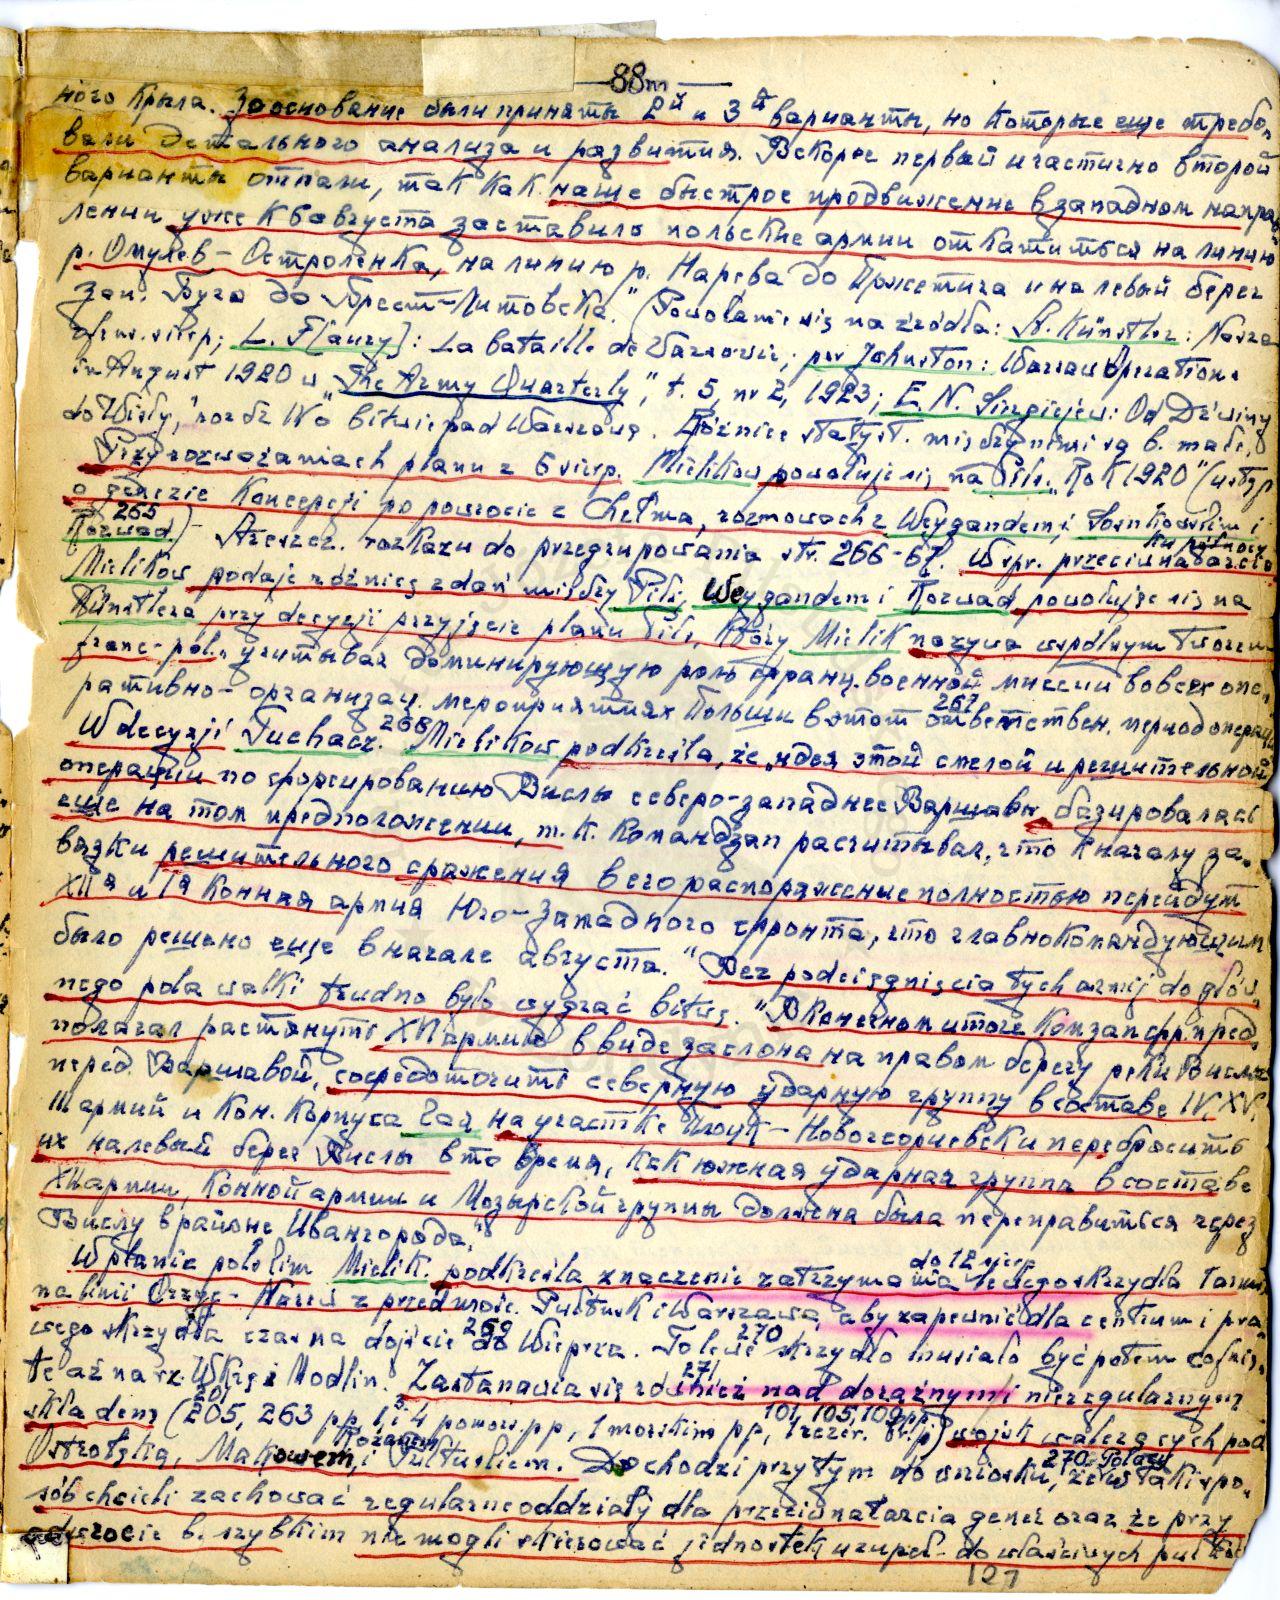 —88m—
ного крыла. За основание были приняты 2й и 3й варианты, но которые еще требо-
вали детального анализа и развития. Вскоре первый и частично второй
варианты отпали, так как наше быстрое продвижение в западном направ-
лении уже к 8 августа заставило польские армии откатиться на линию
р. Омулев – Остроленка, на линию р. Нарева до Пржетича и на левый берег
Зап. Буга до Брест-Литовска." (Powołanie się na źródła: A. Künstler: Nasza
L. F[aury]: La bataille de Varsovie; Johnston: Warsaw Operations
in August 1920 w "The Army Quarterly", t. 5, nr 2, 1923; E. N. Siergiejew: Od Dźwiny
do Wisły, rozdz IV o bitwie pod Warszawą. Różnice statyst. między nimi są b. małe.
Przy rozważaniach planu z 6 sierp. Mielikow powołuje się na Pils. "Rok 1920" (ustęp
o genezie Koncepcji po powrocie z Chełma, rozmowach z Weygandem, Sosnkowskim i
265
Rozwad.) – Streszcz. rozkazu do przegrupowania str. 266-67. W spr. przeciwnatarcia
ku północy
Mielikow podaje różnicę zdań między Pils, Weygandem i Rozwad powołując się na
Künstlera przy decyzji przyjęcie planu Pils, który Mielik nazywa wspólnym tworem
franc-pol. "учитывая доминирующую роль франц. военной миссии во всех опе-
ративно-организац. мероприятиях Польши в этот ответствен. период операции
267
W decyzji Tuchacz. 268 Mielikow podkreśla, że "идея этой смелой и решительной
операции по форсированию Вислы северо-западнее Варшавы базировалась
еще на том предположении, т.к. Командзап расчитывал, что к началу за-
вязки решительного сражения в его распоряжение полностью перейдут
XIIя и 1я Конная армия Юго-Западного фронта, что главнокомандующим
было решено еще в начале августа." Bez podciągnięcia tych armij do głów-
nego pola walki trudno było wygrać bitwę. "В конечном итоге Комзапфр. пред-
полагал растянуть XVI армию в виде заслона на правом берегу реки Вислы
перед Варшавой, сосредоточить северную ударную группу в составе IV, XV,
III армий и Кон. Корпуса Гая на участке Плоцк – Новогеоргиевск и перебросить
их на левый берег Вислы в то время, как южная ударная группа в составе
XII армии, Конной армии и Мозырской группы должна была переправиться через
Вислу в районе Ивангорода."
W planie polskim Mielik. podkreśla znaczenie zatrzymania do 12 sier lewego skrzydła
na linii Orzyc – Narew z przedmośc. Pułtusk i Warszawa, aby zapewnić dla centrum i pra-
wego skrzydła czas na dojście 269 do Wieprza. To lewe 270 skrzydło musiało być potem cofnię-
te aż na rz. Wkrę i Modlin. Zastanawia się również 271 nad doraźnymi nieregularnym
składem (201, 205, 263 pp, 1 i 4 pomors. pp, 1 morskim pp, 101, 105, 109 pp, 1 rezer. ) wojsk walczących pod
Ostrołęką, Makowem, Różanem i Pułtuskiem. Dochodzi przytym do wniosku, 270 że Polacy w taki spo-
sób chcieli zachować regularne oddziały dla przeciwnatarcia gener oraz że przy
odwrocie b. szybkim nie mogli skierować jednostek uzupeł- do właściwych pułków
127